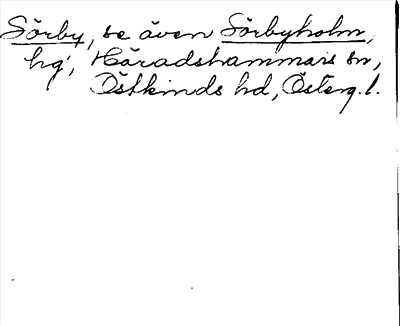 Sörby, se även Sörbyholm,
hg, Häradshammars sn,
Östkinds hd, Österg.l.